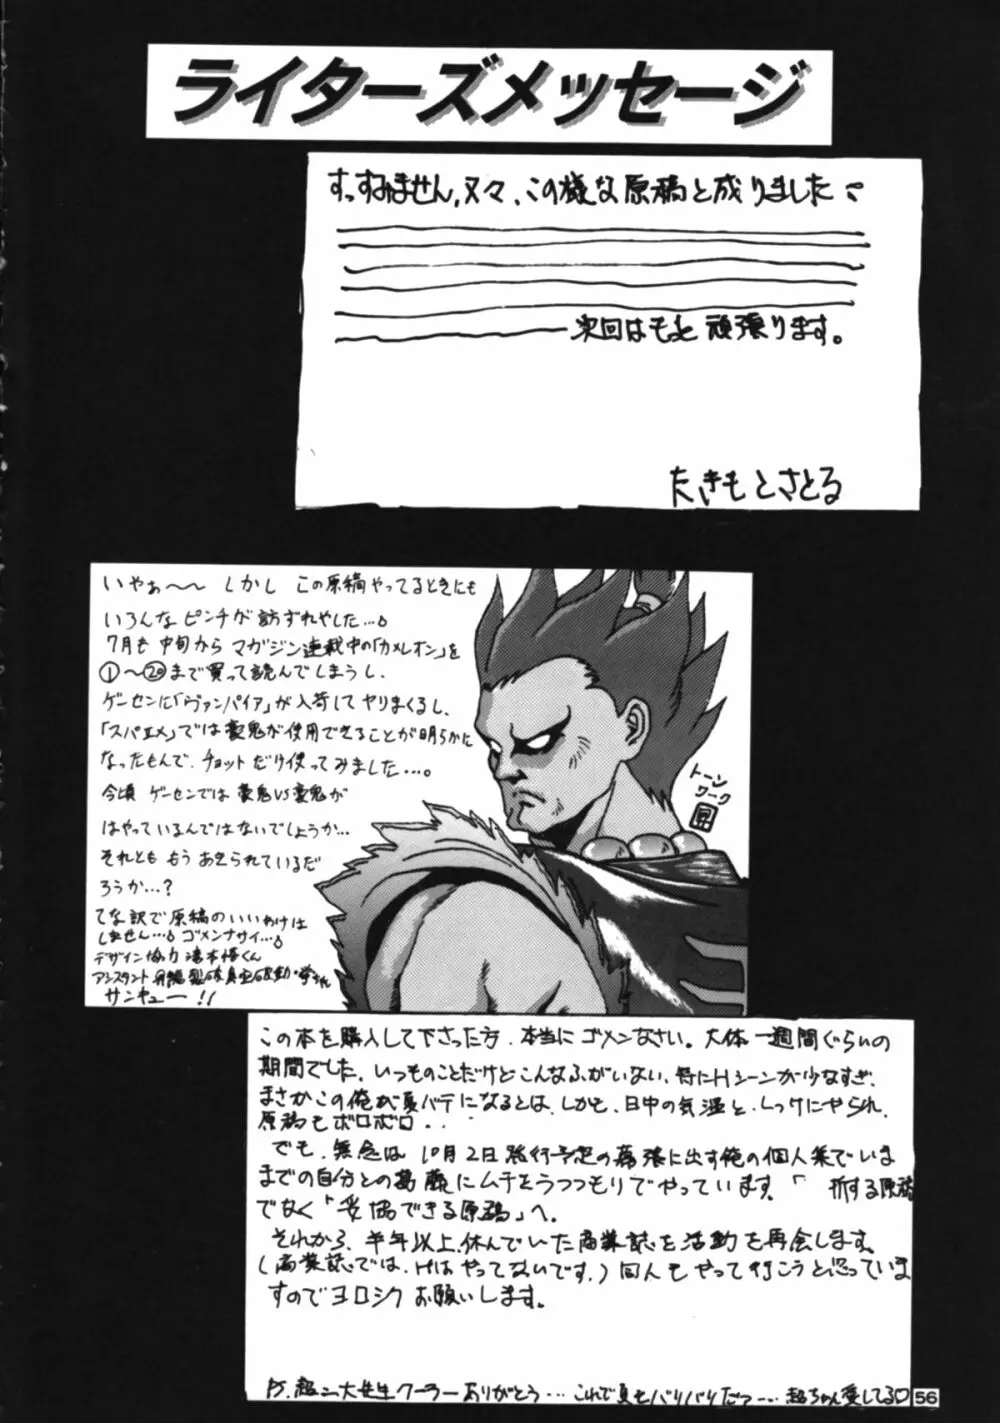 ライターズメッセージ
すっすみません、又々、この様な原稿と成りました
次回はもっと頑張ります。
たきもとさとる
いやぁ〜〜 しかし この原稿やってるときにも
いろんなピンチが訪ずれやした…
7月も中旬からマガジン連載中の「カメレオン」を
①〜⑳まで買って読んでしまうし、
ゲーセンに「ヴァンパイア」が入荷してヤりまくるし、
「スパエメ」では豪鬼が使用できることが明らかに
なったもんで、チョットだけ使ってみました…。
今頃 ゲーセンでは 豪鬼VS豪鬼が
はやっているんではないでしょうか…
それとも もう あきられているだ
ろうか…?
てな訳で原稿のいいわけは
しません… ゴメンナサイ…
デザイン協力 滝本悟くん
アシスタント
サンキュー!!
トーン
ワーク
昇
この本を購入して下さった方、本当にゴメンなさい。大体一週間ぐらいの
期間でした、いつものことだけどこんなふがいない、特にHシーンが少なすぎ、
まさかこの俺が夏バテになるとは、しかも、日中の気温と、しっけにやられ、
原稿もボロボロ・・
でも、無念は10月2日発行予定の幕張に出す俺の個人集でいま
までの自分との葛藤にムチをうつつもりでやっています。「 折する原稿
でなく「妥協できる原稿」へ。
それから、半年以上、休んでいた商業誌を活動を再会します。
(商業誌では、Hはやってないです。)同人もやって行こうと思っていま
すのでヨロシク お願いします。
PS.超二大先生クーラーありがとう…これで夏もバリバリだっ…超ちゃん愛してる♡
56